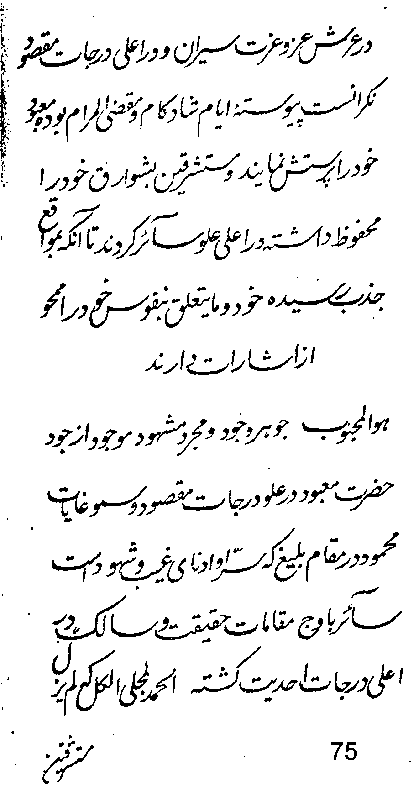 در عرش عز و عزت سیران و در اعلی درجات مقصود
نگرانست پیوسته ایام شاد کام و مقضی المرام بوده معبود
خود را پرستش نمایند و مستشرقین بشوارق خود را
محفوظ داشته در اعلی علو سائر گردند تا آنکه بمواقع
جذب رسیده خود و ما یتعلق بنفوس خود را محو
از اشارات دارند
هو المحبوب جوهر وجود و مجرد مشهود موجود از جود
حضرت معبود در علو درجات مقصود و سمو غایات
محمود در مقام بلیغ که سر او ادنای غیب و شهود است
سائر باوج مقامات حقیقت و سالک در
اعلی درجات احدیت گشته الحمد لمجلی الکل کم لم یزل
75
مستشرقین